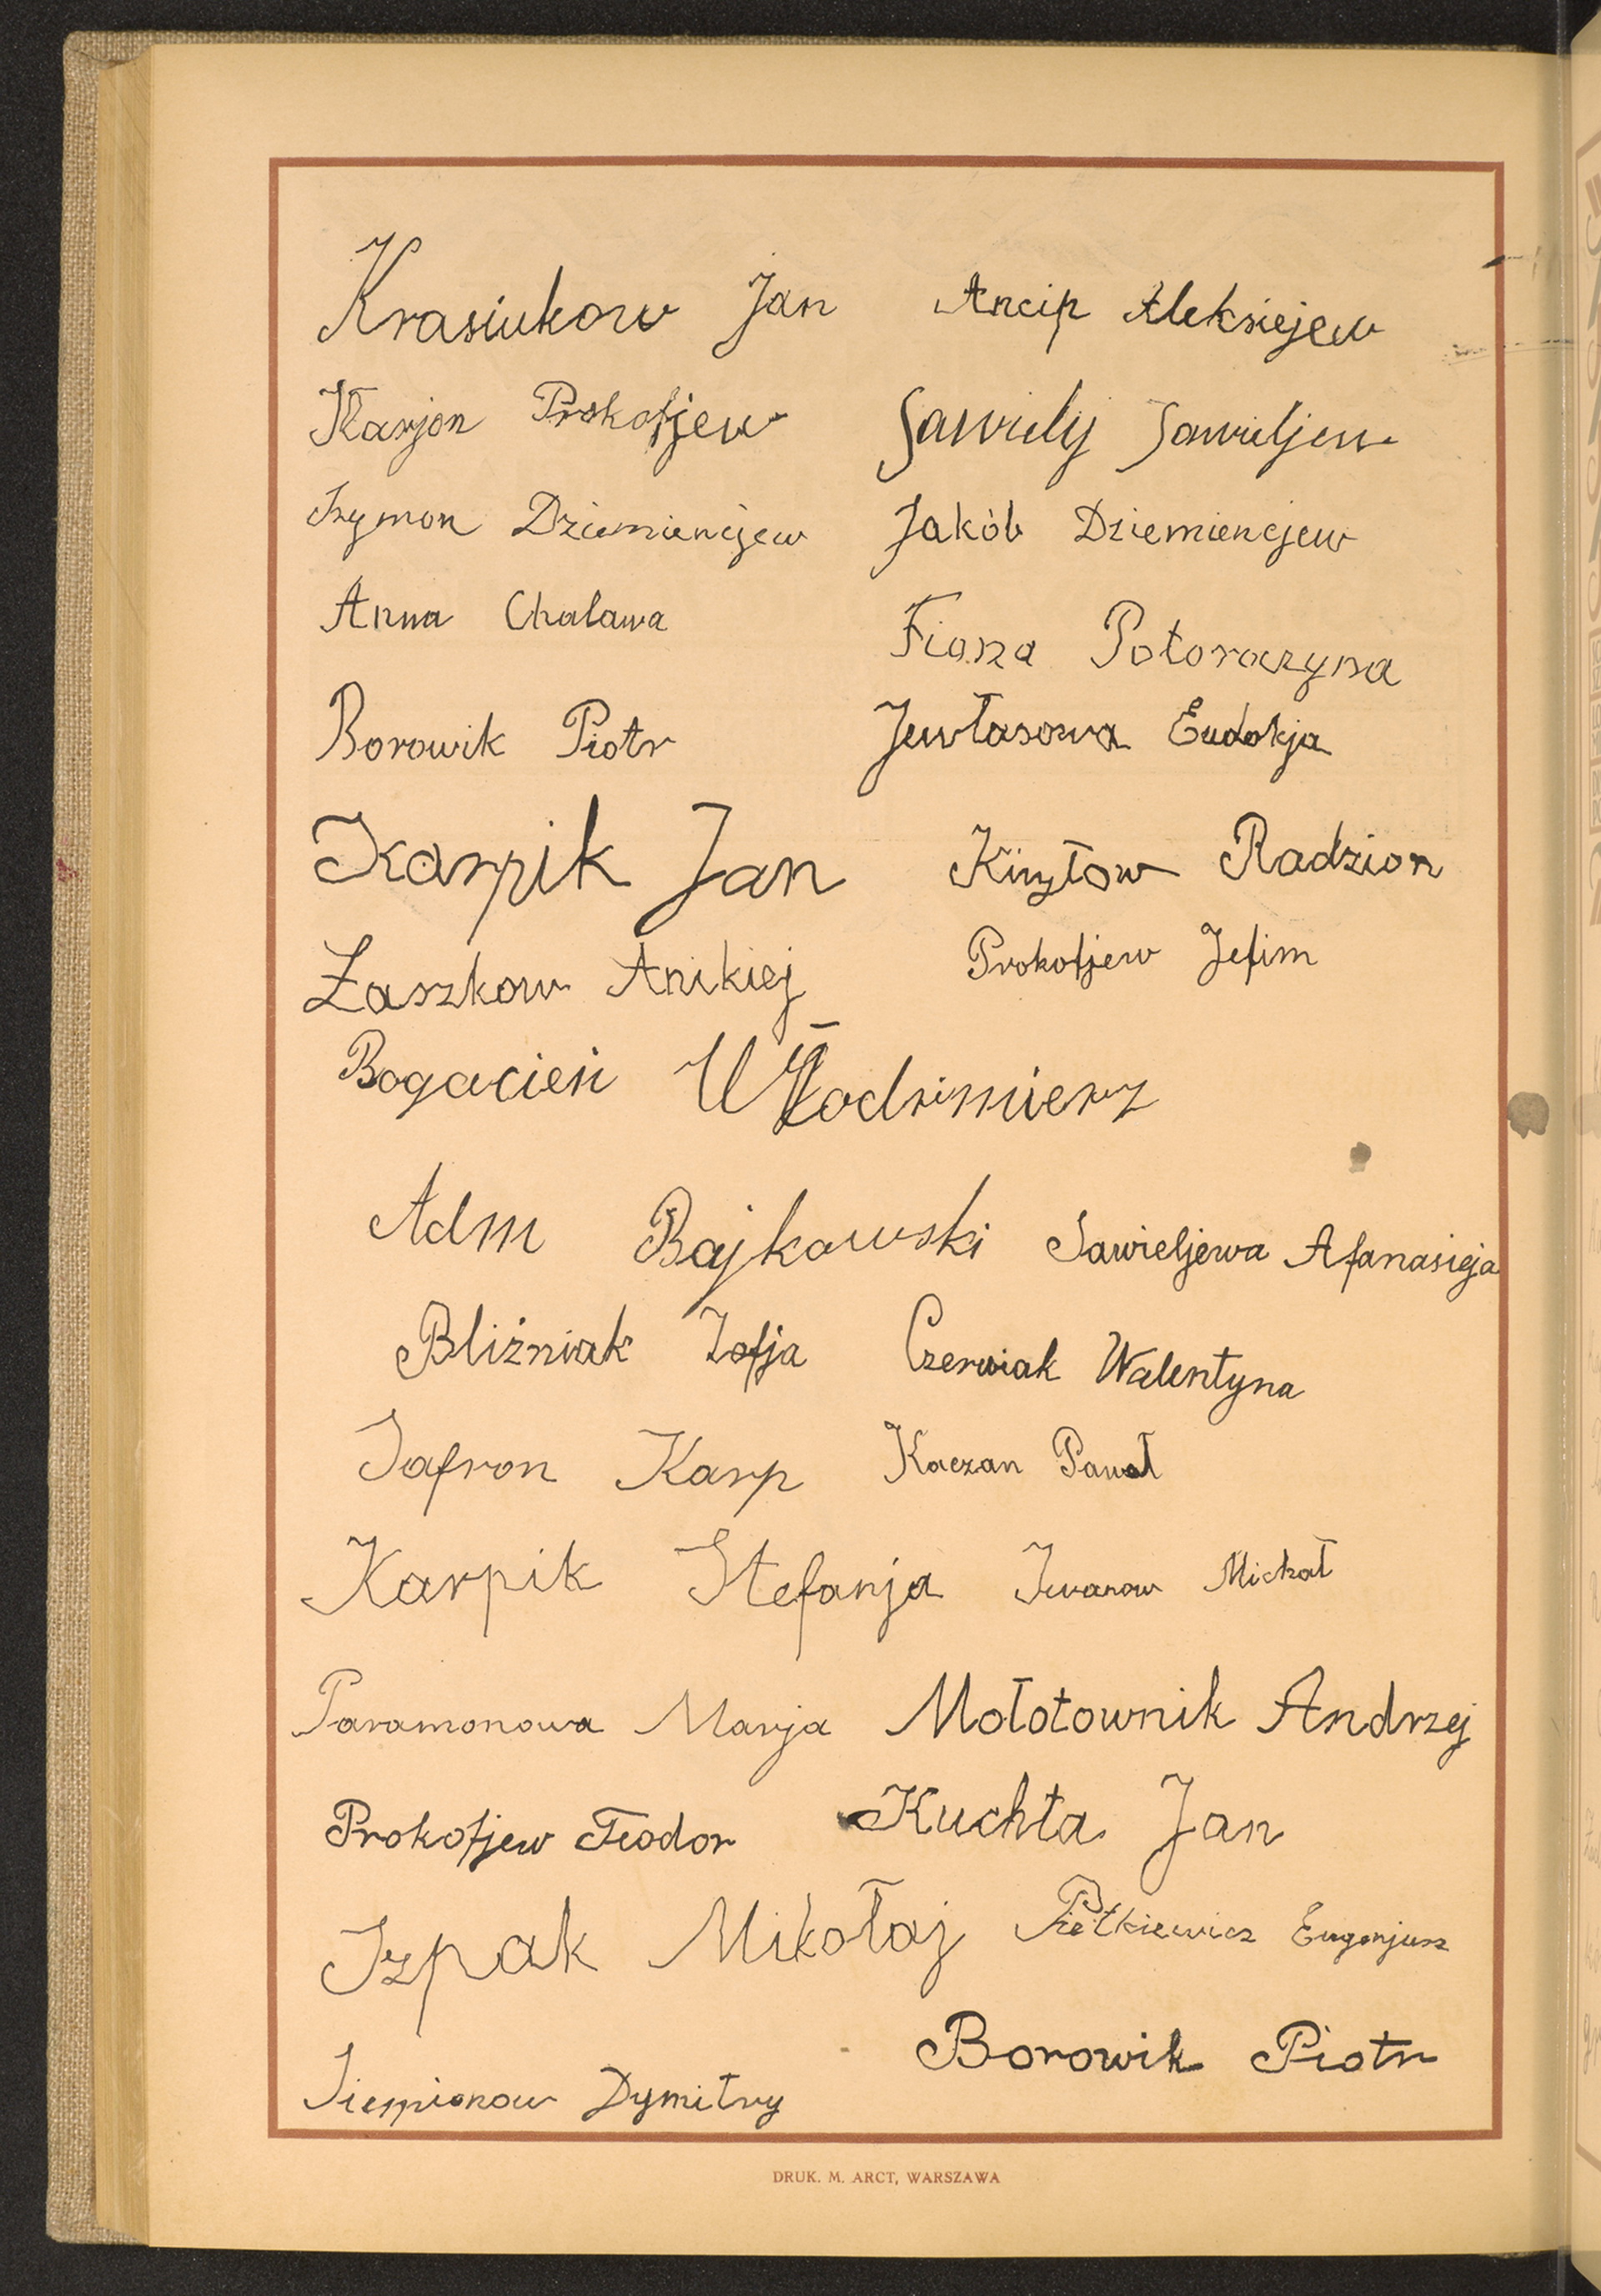 Krasiukow Jan Ancip Aleksiejew
Karjon Prokofjew Sawielij Sawieljew
Szymon Dziemiencjew Jakób Dziemiencjew
Anna Chalawa Fiona Potoraczyna
Borowik Piotr Jewłasowa Eudokja
Karpik Jan Kiryłow Radzion
Łaszkow Anikiej Prokofjew Jefim
Bogacień Włodzimierz
Adm Bajkowski Sawieljewa Afanasieja
Bliźniak Zofja Czerwiak Walentyna
Safron Karp Kaczan Paweł
Karpik Stefanja Iwanow Michał
Paramonowa Marja Mołotownik Andrzej
Prokofjew Fiodor Kuchta Jan
Szpak Mikołaj Pietkiewicz Eugenjusz
Borowik Piotr
Siemionow Dymitry
DRUK. M. ARCT, WARSZAWA